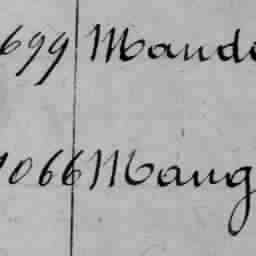 699 Mande
1066 Maug